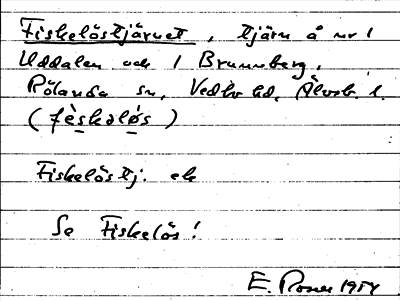 Fiskelöstjärnet, tjärn å nr 1
Uddalen och 1 Brunneberg,
Rölanda sn, Vedbo hd, Älvsb. l.
(fèskəløs)
Fiskelöstj. ek
Se Fiskelös!
E. Rosen 1954